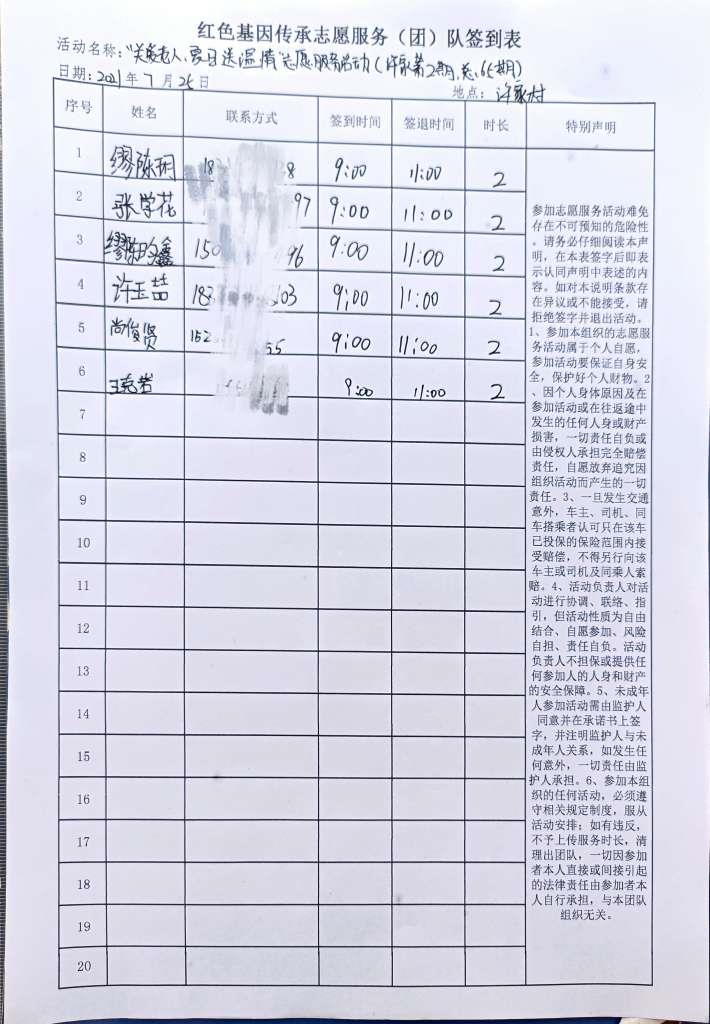 红色基因传承志愿服务（团）队签到表
活动名称："关爱老人、夏日送温情"志愿服务活动（许家第2期、总65期）
日期：2021年7月25日
地点：许家村
序号 姓名 联系方式 签到时间 签退时间 时长 特别声明
1 缪陈玥 18 8 9:00 11:00 2
2 张学花 97 9:00 11:00 2
3 缪 鑫 150 96 9:00 11:00 2
4 许玉喆 183 03 9:00 11:00 2
5 尚俊贤 152 55 9:00 11:00 2
6 王克岩 9:00 11:00 2
7
8
9
10
11
12
13
14
15
16
17
18
19
20
参加志愿服务活动难免
存在不可预知的危险性
。请务必仔细阅读本声
明，在本表签字后即表
示认同声明中表述的内
容。如对本说明条款存
在异议或不能接受，请
拒绝签字并退出活动。
1、参加本组织的志愿服
务活动属于个人自愿，
参加活动要保证自身安
全，保护好个人财物。2
、因个人身体原因及在
参加活动或在往返途中
发生的任何人身或财产
损害，一切责任自负或
由侵权人承担完全赔偿
责任，自愿放弃追究因
组织活动而产生的一切
责任。3、一旦发生交通
意外，车主、司机、同
车搭乘者认可只在该车
已投保的保险范围内接
受赔偿，不得另行向该
车主或司机及同乘人索
赔。4、活动负责人对活
动进行协调、联络、指
引，但活动性质为自由
结合、自愿参加、风险
自担、责任自负。活动
负责人不担保或提供任
何参加人的人身和财产
的安全保障。5、未成年
人参加活动需由监护人
同意并在承诺书上签
字，并注明监护人与未
成年人关系，如发生任
何意外，一切责任由监
护人承担。6、参加本组
织的任何活动，必须遵
守相关规定制度，服从
活动安排；如有违反，
不予上传服务时长，清
理出团队，一切因参加
者本人直接或间接引起
的法律责任由参加者本
人自行承担，与本团队
组织无关。